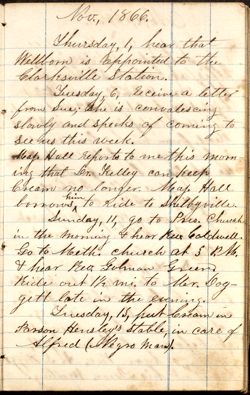 Nov, 1866.
Thursday, 1, hear that
Wellborn is appointed to the
Clarksville Station.
Tuesday, 6, Receive a letter
from Sue; She is convalescing
slowly and speaks of coming to
see us this week.
Hall reports to me this morn
ing that Dr. Kelley can keep
Cream no longer. Hall
borrows him, to ride to Shelbyville.
Sunday, 11, go to Pres. Church
in the morning & hear Rev. Caldwell
Go to Meth. church at 3 P.M.
& hear Rev Green
Ride out 1½ mi. to Mr. Dog-
gett late in the evening.
Tuesday, 13, put Cream in
Parson Hensley's Stable, in care of
Alfred (Negro Man).